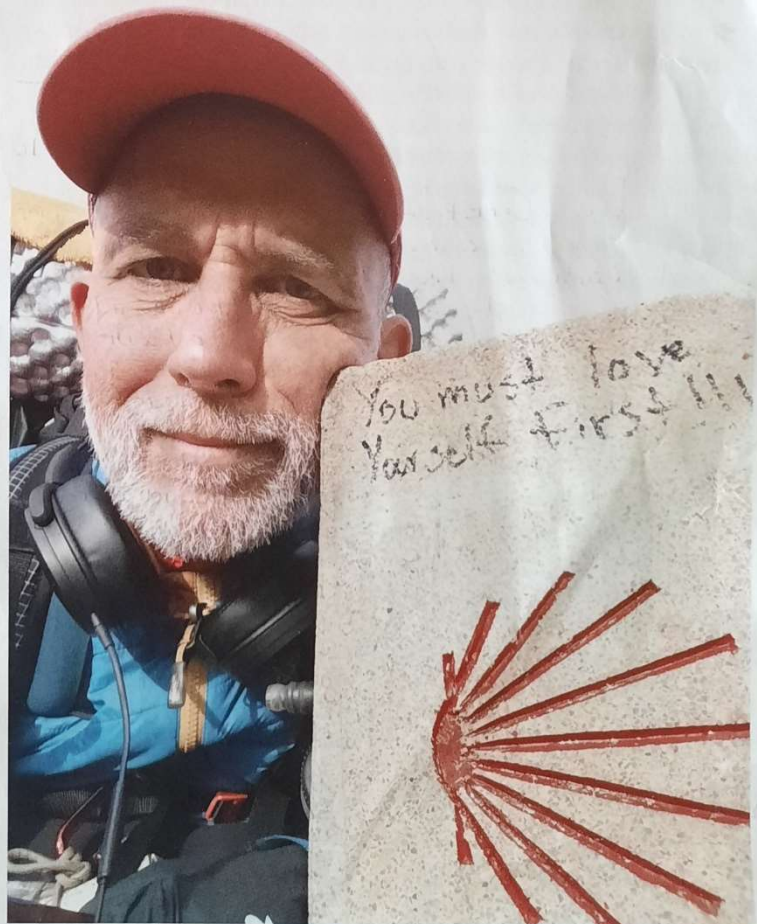 You must love
Yourself first!!!